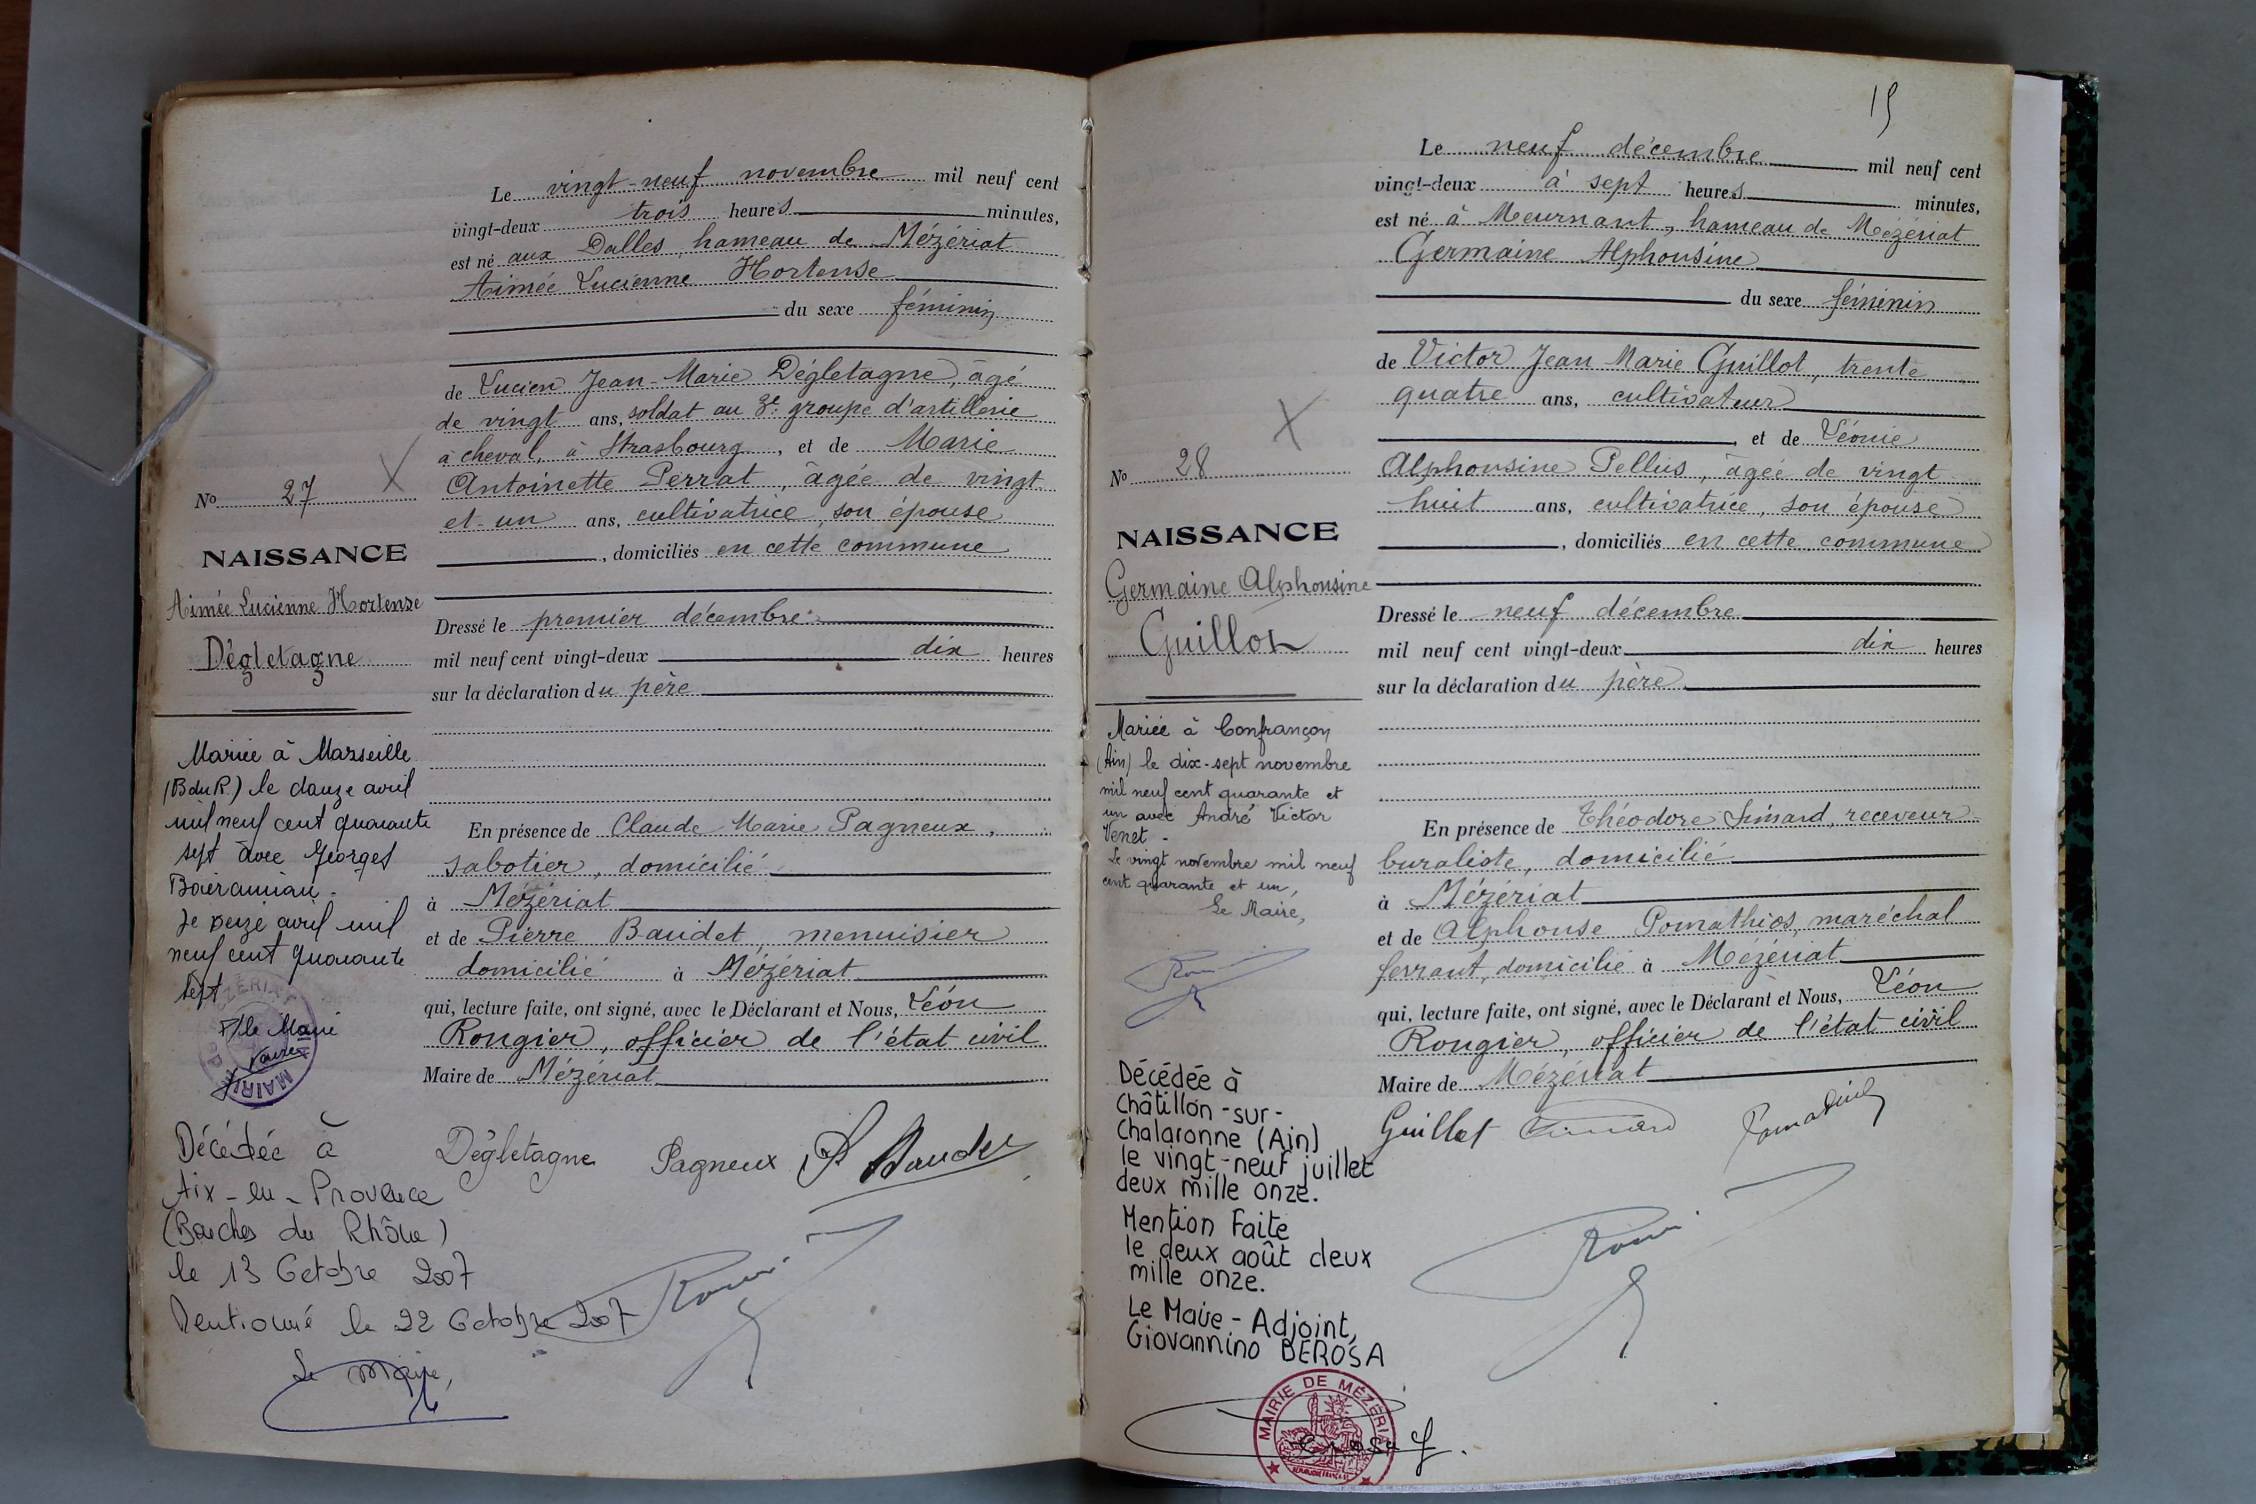 Le vingt-neuf novembre mil neuf cent
vingt-deux trois heures minutes,
est né aux Dalles, hameau de Mézériat
Aimée Lucienne Hortense
du sexe féminin
de Lucien Jean-Marie Dégletagne, âgé
de vingt ans, soldat au 3e groupe d'artillerie
à cheval, à Strasbourg, et de Marie
Antoinette Perrat, âgée de vingt
et un ans, cultivatrice, son épouse
, domiciliés en cette commune
Dressé le premier décembre
mil neuf cent vingt-deux dix heures
sur la déclaration du père
En présence de Claude Marie Pagneux,
sabotier, domicilié
à Mézériat
et de Pierre Baudet, menuisier
domicilié à Mézériat
qui, lecture faite, ont signé, avec le Déclarant et Nous, Léon
Rougier, officier de l'état civil
Maire de Mézériat
Dégletagne Pagneux P Baudet
No 27
NAISSANCE
Aimée Lucienne Hortense
Dégletagne
Mariée à Marseille
(B du R.) le douze avril
mil neuf cent quarante
sept avec Georges
Boièramian.
Le seize avril mil
neuf cent quarante
sept
P/le Maire
MAIRIE
Décédée à
Aix-en-Provence
(Bouches du Rhône)
le 13 Octobre 2007
Mentionné le 22 Octobre 2007
Le Maire,
15
Le neuf décembre mil neuf cent
vingt-deux à sept heures minutes,
est né à Meurnant, hameau de Mézériat
Germaine Alphonsine
du sexe féminin
de Victor Jean Marie Guillot, trente
quatre ans, cultivateur
, et de Léonie
Alphonsine Pellus, âgée de vingt
huit ans, cultivatrice, son épouse
, domiciliés en cette commune
Dressé le neuf décembre
mil neuf cent vingt-deux dix heures
sur la déclaration du père
En présence de Théodore Simard, receveur
buraliste, domicilié
à Mézériat
et de Alphonse Pomathios, maréchal
ferrant, domicilié à Mézériat
qui, lecture faite, ont signé, avec le Déclarant et Nous, Léon
Rougier, officier de l'état civil
Maire de Mézériat
Guillot Simard Pomathios
No 28
NAISSANCE
Germaine Alphonsine
Guillot
Mariée à Confrançon
(Ain) le dix-sept novembre
mil neuf cent quarante et
un avec André Victor
Venet -
Le vingt novembre mil neuf
cent quarante et un,
Le Maire,
Décédée à
Châtillon-sur-
Chalaronne (Ain)
le vingt-neuf juillet
deux mille onze.
Mention Faite
le deux août deux
mille onze.
Le Maire-Adjoint,
Giovannino BEROSA
MAIRIE DE MÉZÉRIAT